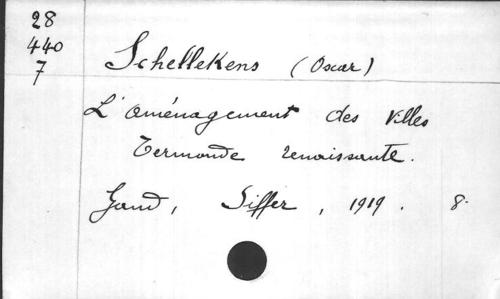 28
440
7
Schellekens (Oscar)
L'aménagement des Villes
Termonde renaissante.
Gand, Siffer, 1919. 8.